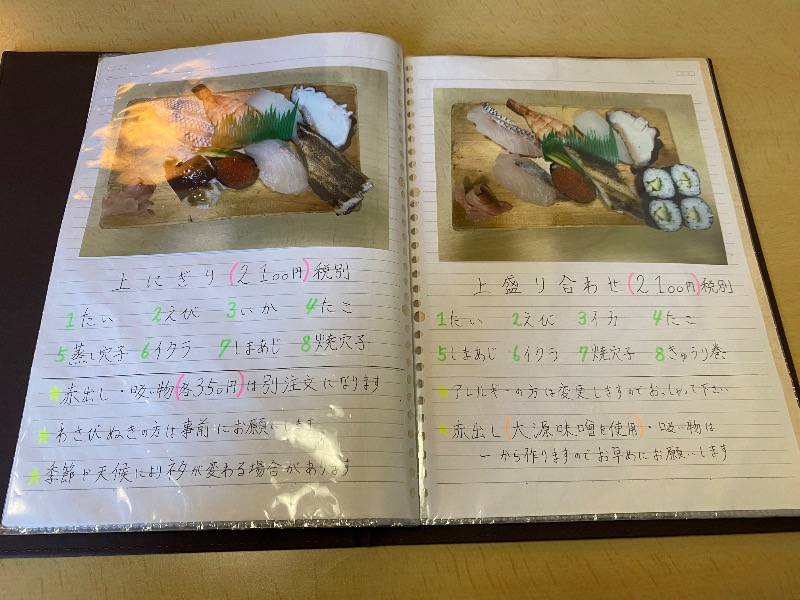 上にぎり(2100円)税別
1たい 2えび 3いか 4たこ
5蒸し穴子 6イクラ 7しまあじ 8焼穴子
★赤出し・吸い物(各350円)は別注文になります
★わさびぬきの方は事前にお願いします
★季節や天候によりネタが変わる場合があります
上盛り合わせ(2100円)税別
1たい 2えび 3イカ 4たこ
5しまあじ 6イクラ 7焼穴子 8きゅうり巻
★アレルギーの方は変更しますのでおっしゃて下さい
★赤出し(大源味噌を使用)・吸い物は
一から作りますのでお早めにお願いします